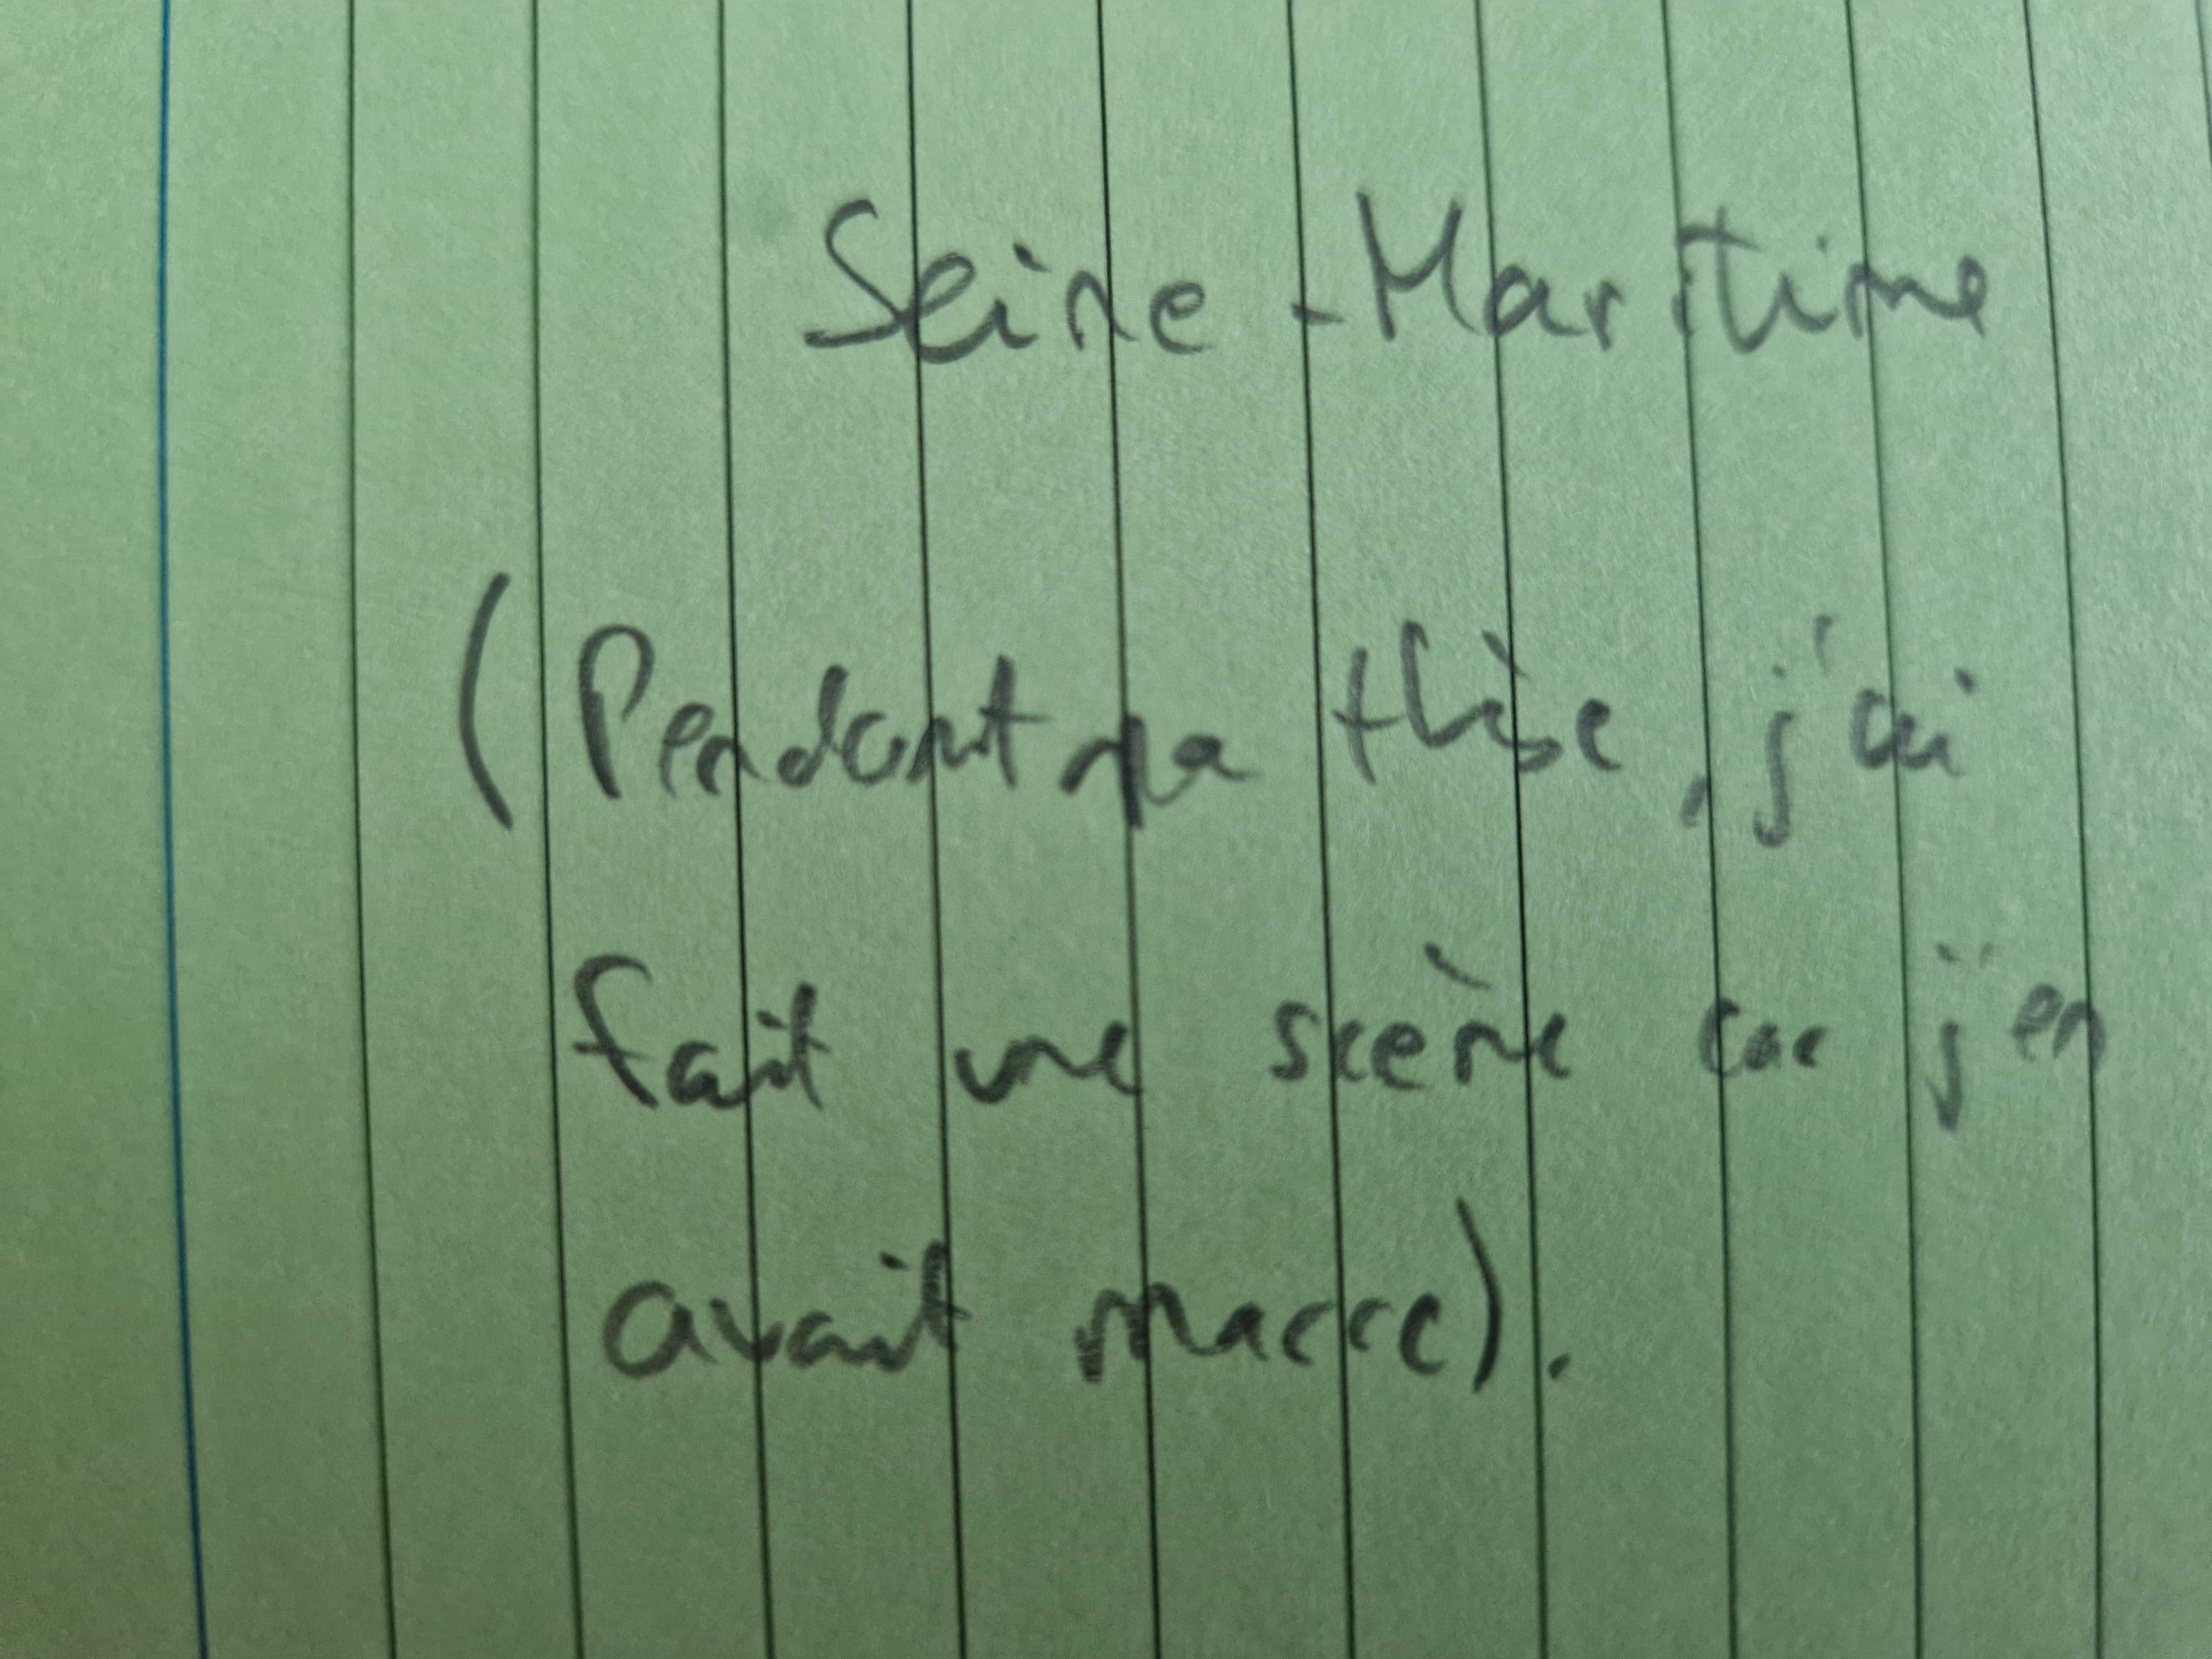 Seine-Maritime
(Pendant ma thèse, j'ai
fait une scène car j'en
avait marre).